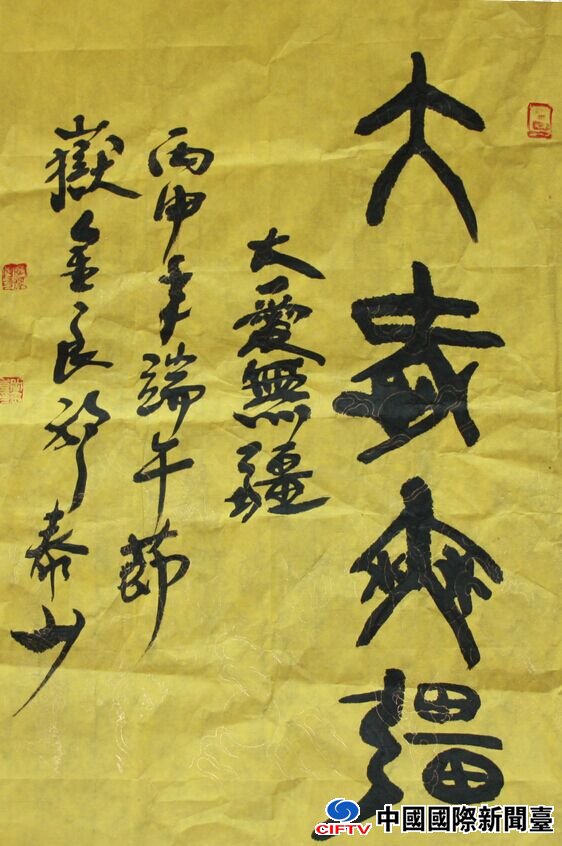 大愛無疆
大愛無疆
丙申年端午節
嶽金良泰山
CIFTV 中國國際新聞臺